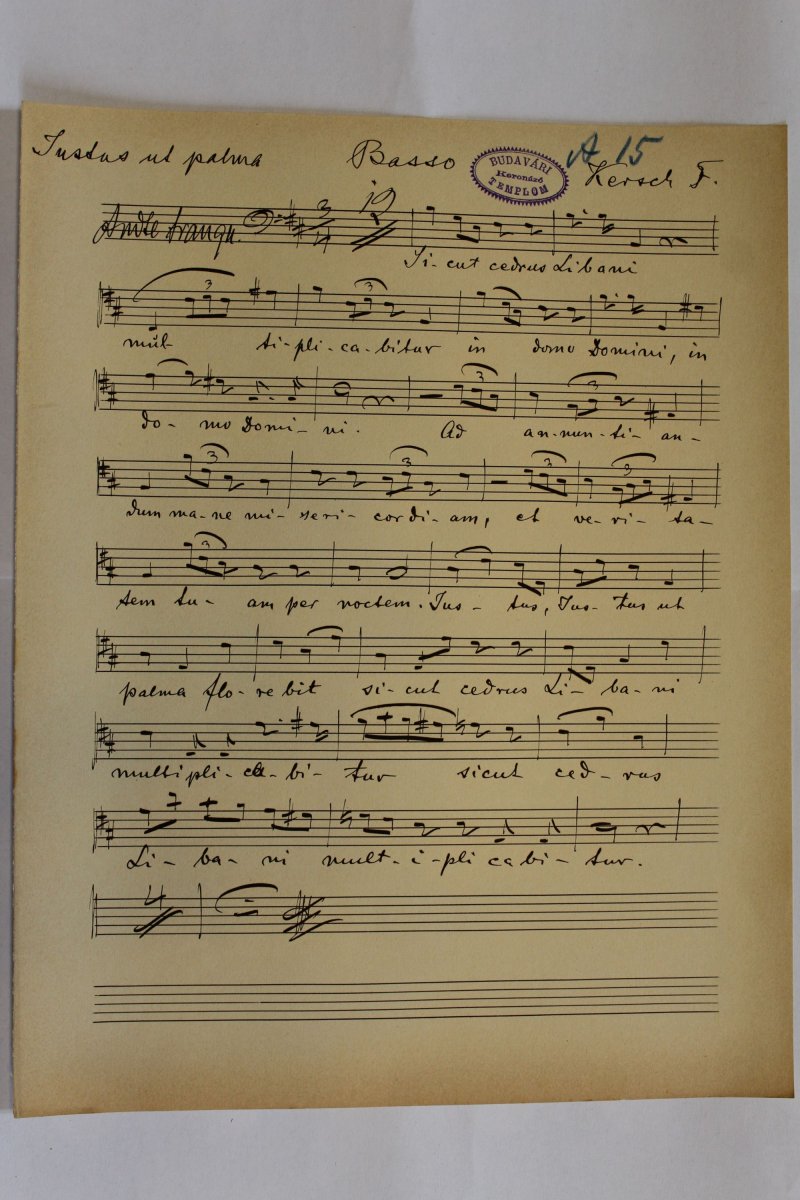 Iustus ut palma Basso A 15
BUDAVÁRI
Koronázó
TEMPLOM
Kersch F.
Andte tranqu. 3/4 12
Si-cut cedrus Libani
mul- ti-pli-ca-bitur in domo Domini, in
3 3
do- mo Domi- ni. Ad an-nun-ti-an-
3 3
dum ma-ne mi-seri-cordi-am, et ve-ri-ta-
3 3 3 3
tem tu- am per noctem. Jus- tus, Jus- tus ut
3
palma flo-re bit si-cut cedrus Li- ba-ni
multipli-ca-bi- tur sicut ced-rus
Li- ba- ni mult-i-pli cabi- tur.
4